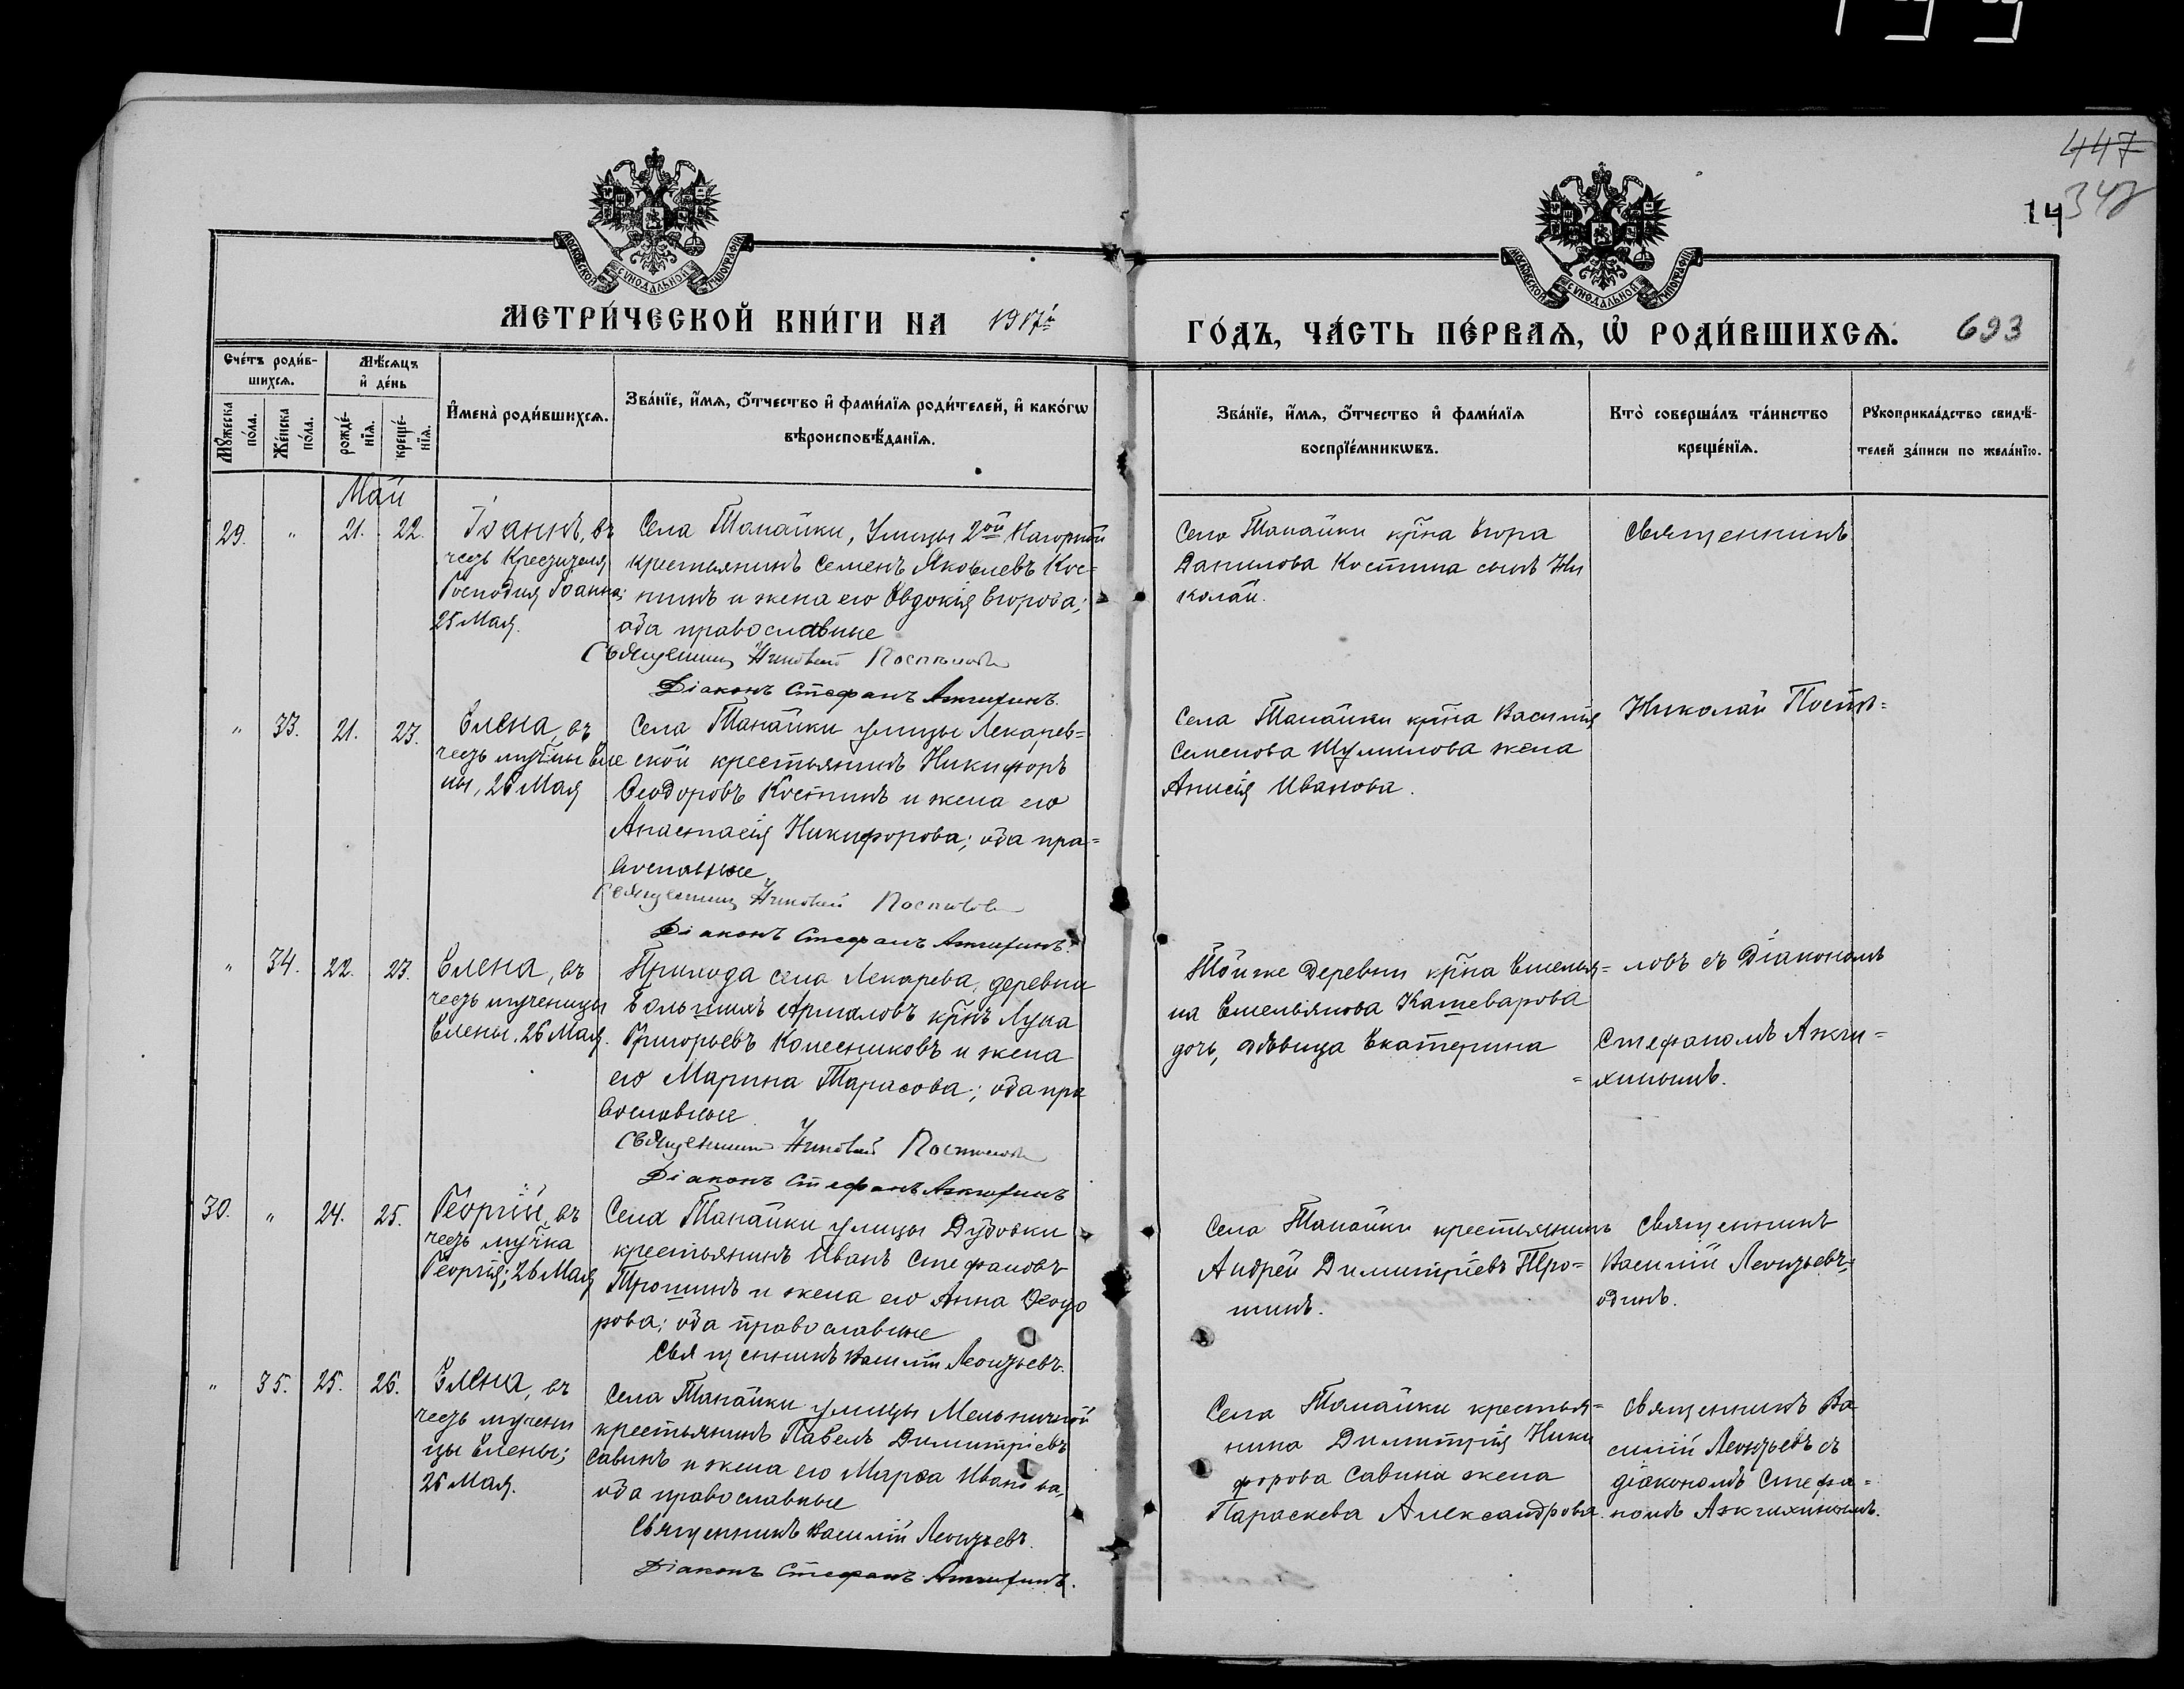 447
348
14
МОСКОВСКОЙ СУНОДАЛЬНОЙ ТИПОГРАФІИ
МОСКОВСКОЙ СУНОДАЛЬНОЙ ТИПОГРАФІИ
МЕТРИ́ЧЕСКОЙ КНИ́ГИ НА 1917й
ГО́ДЪ, ЧА́СТЬ ПЕ́РВАѦ, Ѡ҆ РОДИ́ВШИХСѦ. 693
Сче́тъ роди́в-
шихсѧ.
Мꙋ́жеска по́ла.
Же́нска по́ла.
Мѣ́сѧцъ
и҆ де́нь
рожде́-
нїѧ.
креще́-
нїѧ.
И҆мена̀ роди́вшихсѧ.
Зва́нїе, и҆́мѧ, ѻ҆́тчество и҆ фами́лїѧ роди́телей, и҆ како́гѡ
вѣроисповѣ́данїѧ.
Зва́нїе, и҆́мѧ, ѻ҆́тчество и҆ фами́лїѧ
воспрїе́мникѡвъ.
Кто̀ соверша́лъ та́инство
креще́нїѧ.
Рꙋкоприкла́дство свидѣ́-
телей за́писи по жела́нїю.
Май
29. " 21. 22.
Іоаннъ, въ
честь Крестителя
Господня Іоанна;
25 Мая.
Села Танайки, Улицы 2ой Нагорной
крестьянинъ Семенъ Яковлевъ Кос=
тинъ и жена его Евдокія Егорова;
оба православные
Священникъ Николай Поспѣловъ
Діаконъ Стефанъ Ажгихинъ.
Села Танайки кр̃на Егора
Данилова Костина сынъ Ни
колай.
Священникъ
" 33. 21. 23.
Елена, въ
честь муч̃цы Еле
ны, 26 Мая
Села Танайки улицы Лекарев=
ской крестьянинъ Никифоръ
Ѳеодоровъ Костинъ и жена его
Анастасія Никифорова; оба пра=
вославные
Священникъ Николай Поспѣловъ
Діаконъ Стефанъ Ажгихинъ.
Села Танайки кр̃на Василія
Семенова Шумилова жена
Анисія Иванова.
Николай Поспѣ=
" 34. 22. 23.
Елена, въ
честь мученицы
Елены. 26 Мая.
Прихода села Лекарева, деревни
Большихъ Армаловъ кр̃нъ Лука
Григорьевъ Колесниковъ и жена
его Марина Тарасова; оба пра
вославные
Священникъ Николай Поспѣловъ
Діаконъ Стефанъ Ажгихинъ
Той же деревни кр̃на Емелья=
на Емельянова Кашеварова
дочь, дѣвица Екатерина
ловъ съ Діакономъ
Стефаномъ Ажги=
=хинымъ.
30. " 24. 25.
Георгій, въ
честь муч̃ка
Георгія; 26 Мая
Села Танайки улицы Дубовки
крестьянинъ Иванъ Стефановъ
Трошинъ и жена его Анна Ѳеодо
рова; оба православные
Священникъ Василій Леонтьевъ.
Села Танайки крестьянинъ
Андрей Димитріевъ Тро=
шинъ.
Священникъ
Василій Леонтьевъ;
одинъ.
" 35. 25. 26.
Елена, въ
честь мучени
цы Елены;
26 Мая.
Села Танайки улицы Мельничной
крестьянинъ Павелъ Димитріевъ
Савинъ и жена его Марѳа Иванова,
оба православные
Священникъ Василій Леонтьевъ.
Діаконъ Стефанъ Ажгихинъ.
Села Танайки крестья=
нина Димитрія Ники
форова Савина жена
Параскева Александрова.
Священникъ Ва
силій Леонтьевъ съ
діакономъ Стефа=
номъ Ажгихинымъ.